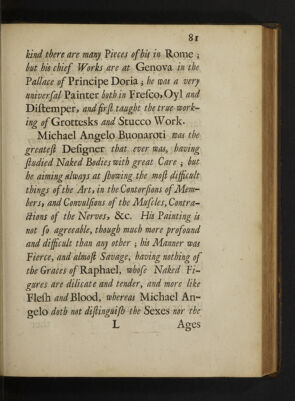 81
kind there are many Pieces of his in Rome ;
but his chief Works are at Genova in the
Pallace of Principe Doria ; he was a very
univerſal Painter both in Freſco, Oyl and
Diſtemper, and firſt taught the true work-
ing of Grottesks and Stucco Work.
Michael Angelo Buonaroti was the
greateſt Deſigner that ever was, having
ſtudied Naked Bodies with great Care ; but
he aiming always at ſhowing the moſt difficult
things of the Art, in the Contorſions of Mem-
bers, and Convulſions of the Muſcles, Contra-
ctions of the Nerves, &c. His Painting is
not ſo agreeable, though much more profound
and difficult than any other ; his Manner was
Fierce, and almoſt Savage, having nothing of
the Graces of Raphael, whoſe Naked Fi-
gures are dilicate and tender, and more like
Fleſh and Blood, whereas Michael An-
gelo doth not diſtinguiſh the Sexes nor the
L Ages